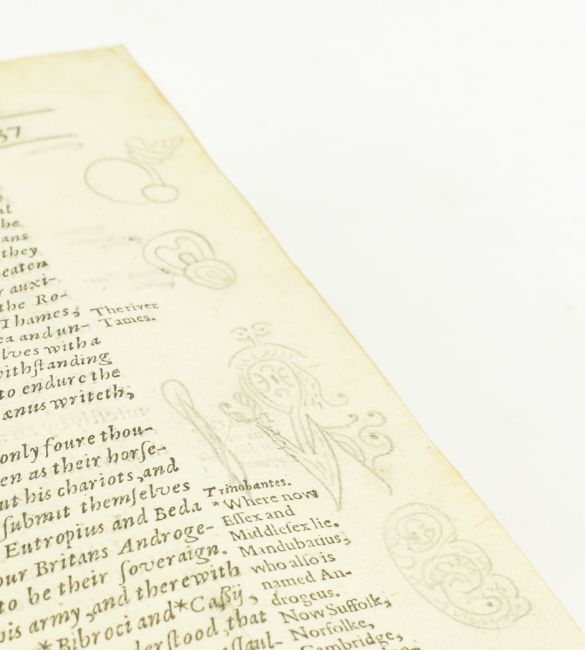 37
he
ans
they
eaten
auxi-
the Ro-
Thames,
ea and un-
lves with a
withſtanding
to endure the
ænus writeth,
only foure thou-
en as their horſe-
ut his chariots, and
ſubmit themſelves
Eutropius and Beda
our Britans Androge-
to be their ſoveraign.
his army, and therewith
*Bibroci and *Caſſij,
derſtood, that
The river
Tames.
Trinobantes.
*Where now
Eſſex and
Middleſex lie.
Mandubatius,
who alſo is
named An-
drogeus.
Now Suffolk,
Norfolke,
Cambridge,